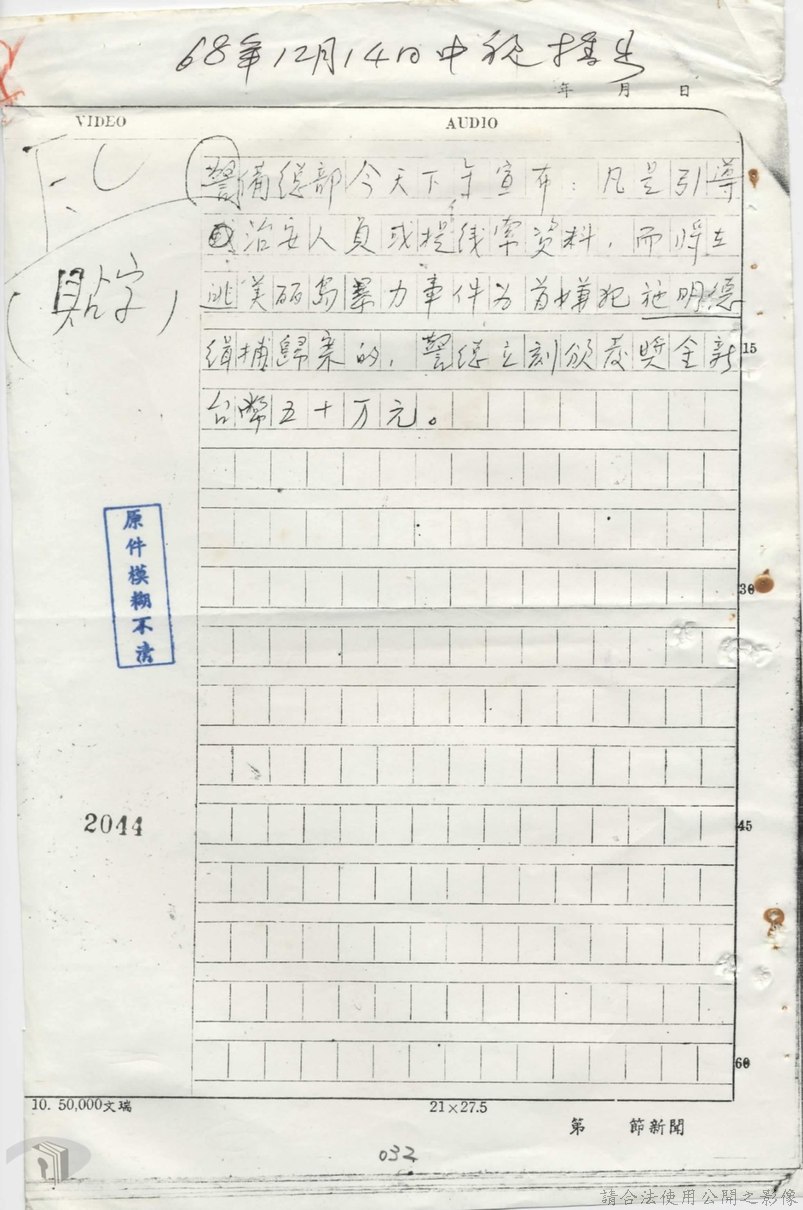 68年12月14日中視播出
年 月 日
VIDEO AUDIO
警備總部今天下午宣布:凡是引導
治安人員或提线索資料,而將在
逃美丽島暴力事件为首嫌犯施明德
緝捕歸案的,警總立刻頒發獎金新
台幣五十万元。
(貼字)
15
30
45
60
原件模糊不清
2044
10. 50,000文瑞
21×27.5
第 節新聞
032
請合法使用公開之影像